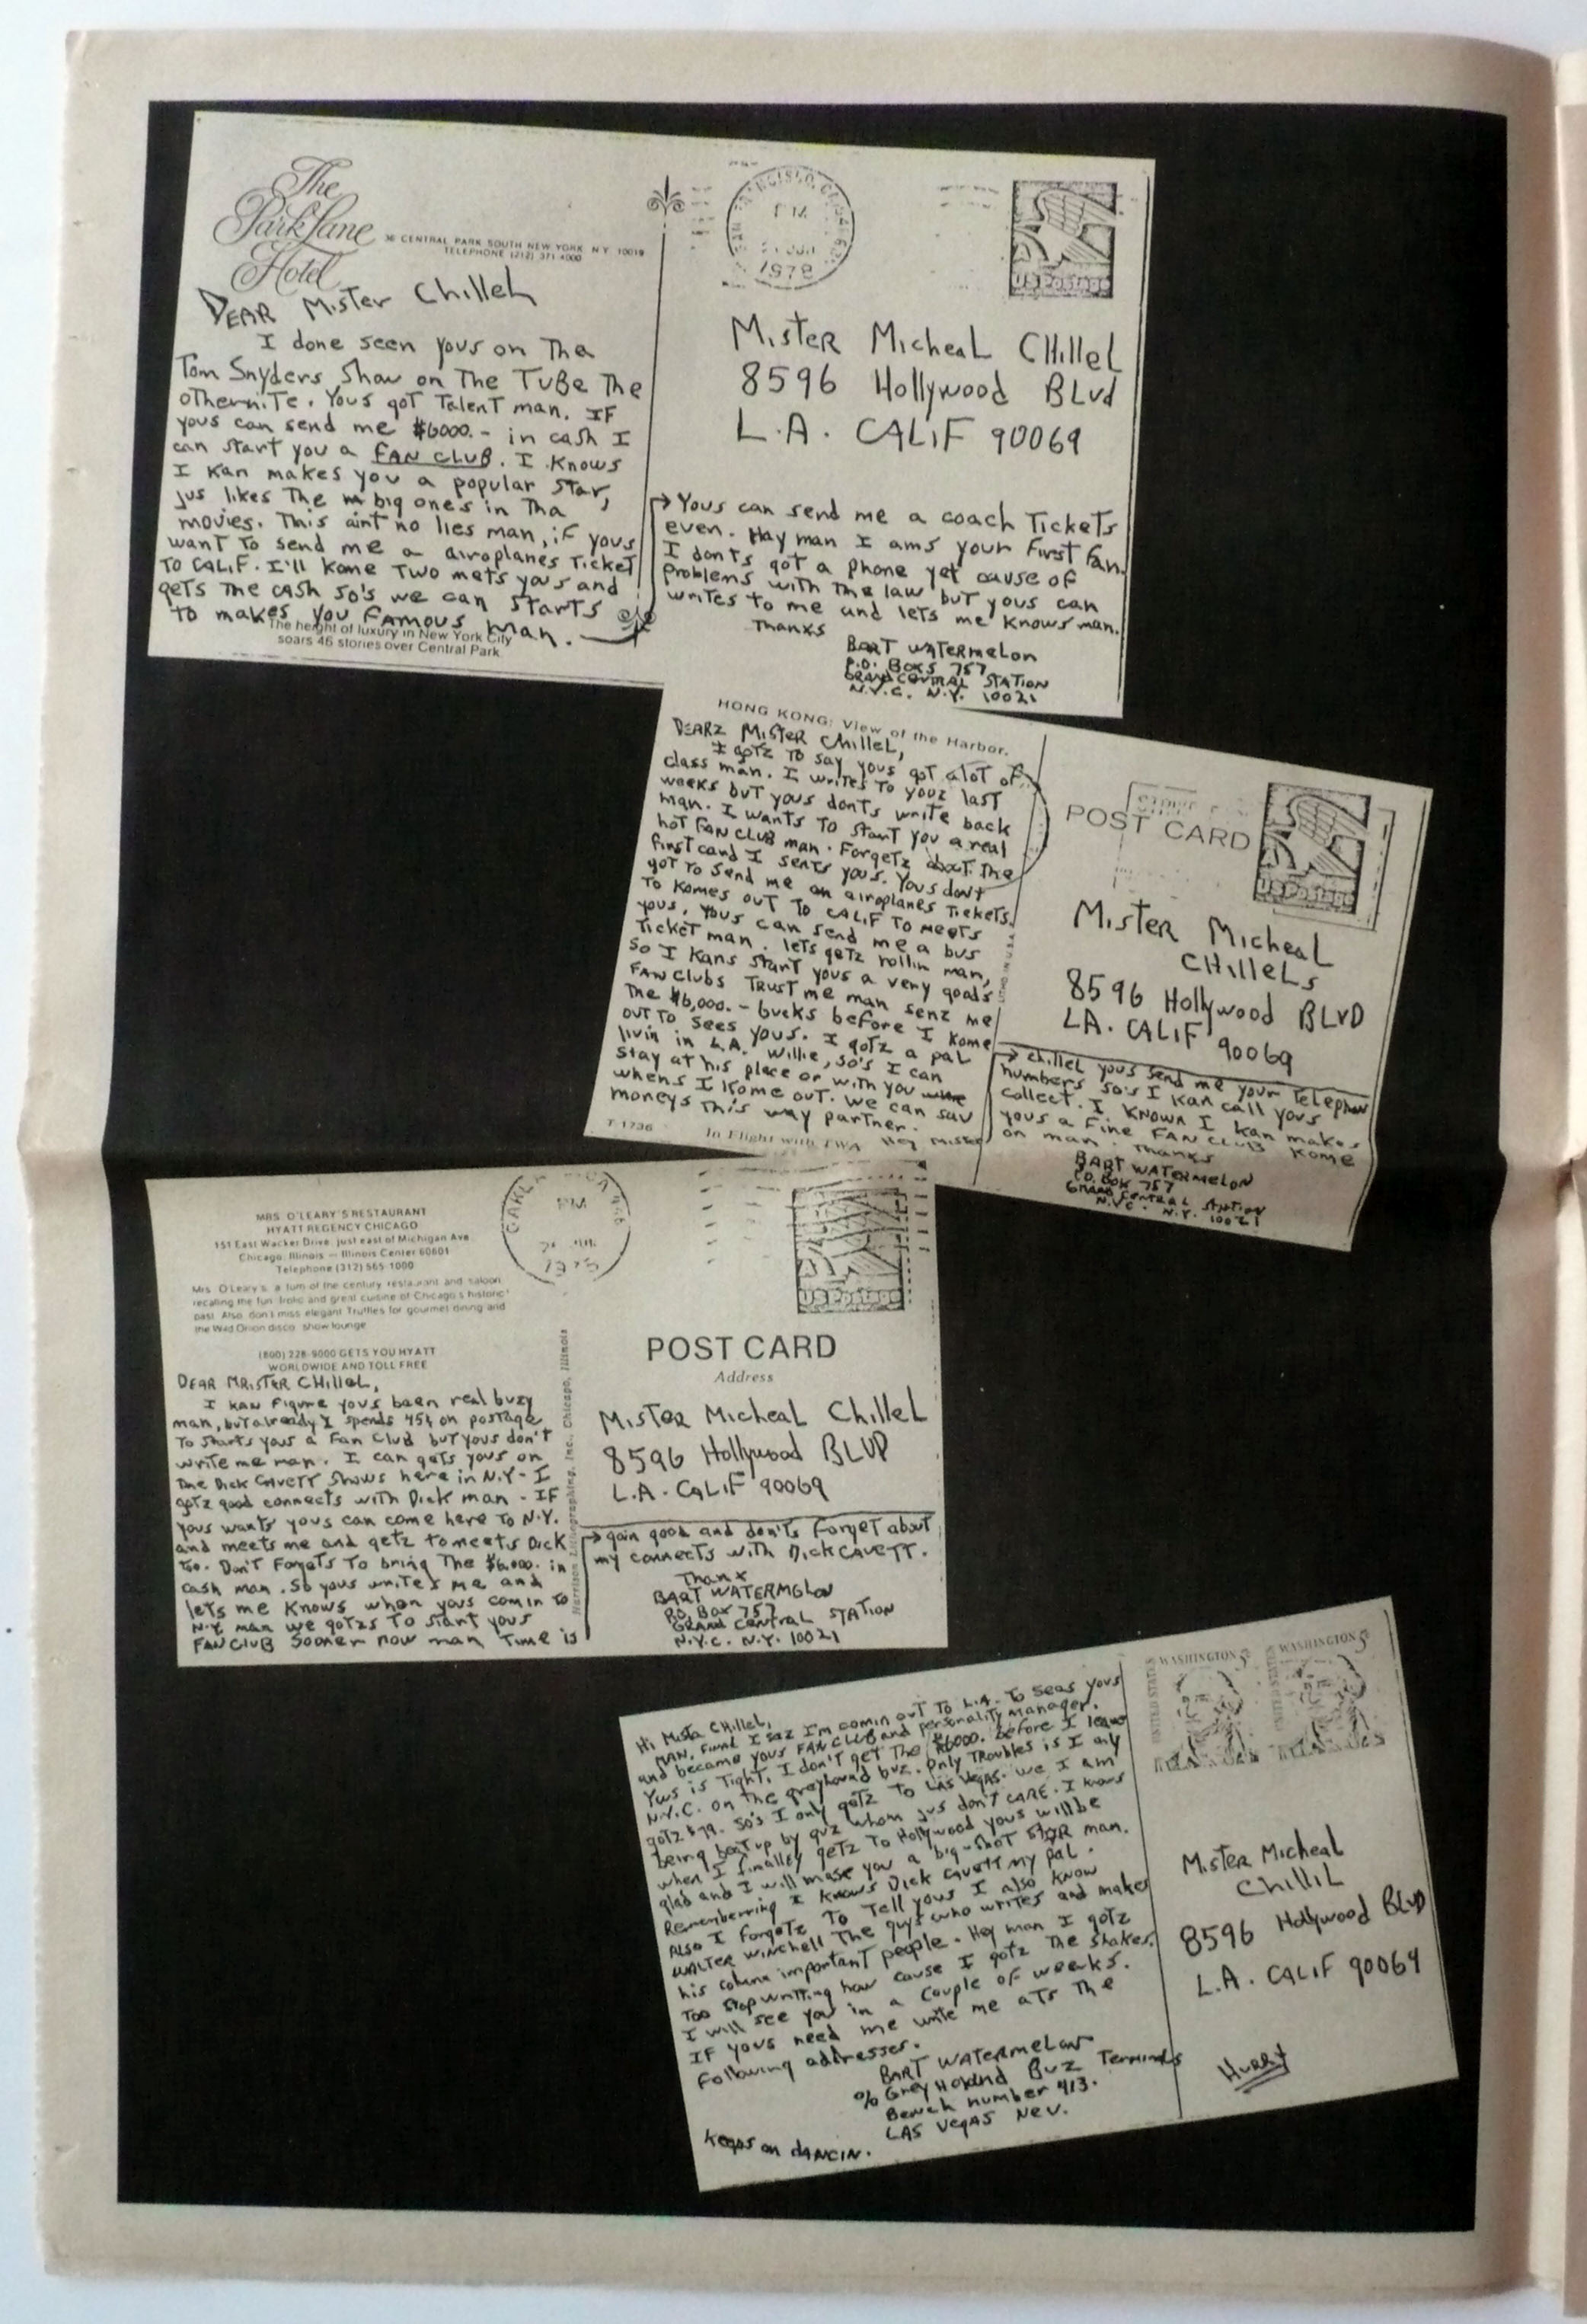 The
Park Lane
Hotel
36 CENTRAL PARK SOUTH NEW YORK N.Y. 10019
TELEPHONE (212) 371-4000
DEAR Mister Chillel
I done seen yous on Tha
Tom Snyders Show on The TuBe The
otherniTe. Yous got Talent man. IF
yous can send me $6000.- in cash I
can start you a FAN CLUB. I Knows
I Kan makes you a popular star,
jus likes The big one's in Tha
movies. This aint no lies man, if yous
want To send me a airoplanes Ticket
To CALIF. I'll Kome Two mets yous and
gets The cash so's we can starts
to makes you Famous man.
The height of luxury in New York City
soars 46 stories over Central Park
SAN FRANCISCO, CA
PM
1978
US Postage
Mister Micheal CHillel
8596 Hollywood BLvd
L.A. CALIF 90069
Yous can send me a coach Tickets
even. Hay man I ams your First Fan.
I dont's got a phone yet cause of
Problems with The law but yous can
writes to me and lets me Knows man.
Thanks
BART WATermelon
P.O. Boks 757
GRAND CENTRAL STATION
N.Y.C. N.Y. 10021
HONG KONG: View of the Harbor.
DEARz MisTer CHilleL,
I gotz To say yous got alot of
class man. I writes To youz last
weeks but yous dont's write back
man. I wants To start you a real
hoT FAN CLUB man. Forgetz about The
First card I sents yous. Yous don't
got To send me an airoplanes Tickets
To Komes out To CALIF To meets
yous. Yous can send me a bus
Ticket man. lets getz rollin man,
So I Kans start yous a very goods
FAN Clubs Trust me man senz me
The $6,000.- bucks before I Kome
out To sees yous. I gotz a pal
livin in L.A. Willie, so's I can
stay at his place or with you
whens I Kome out. We can sav
moneys This way partner.
T-1736
In Flight with TWA
Hey Mister
LITHO IN U.S.A.
POST CARD
US Postage
Mister Micheal
CHilleLs
8596 Hollywood BLVD
LA. CALIF 90069
chillel yous send me your Telephon
numbers so's I Kan call yous
collect. I KNOWN I Kan makes
yous a Fine FAN CLUB Kome
on man. Thanks
BART WATERMELON
P.O. BOK 757
GRAND CENTRAL STATION
N.Y.C. N.Y. 10021
MRS. O'LEARY'S RESTAURANT
HYATT REGENCY CHICAGO
151 East Wacker Drive, just east of Michigan Ave.
Chicago, Illinois — Illinois Center 60601
Telephone (312) 565-1000
Mrs. O'Leary's, a turn of the century restaurant and saloon
recalling the fun, frolic and great cuisine of Chicago's historic
past. Also, don't miss elegant Truffles for gourmet dining and
the Wild Onion disco show lounge
(800) 228-9000 GETS YOU HYATT
WORLDWIDE AND TOLL FREE
DEAR MRISTER CHilleL,
I KAN Figure yous been real buzy
man, but already I spends 45¢ on postage
To starts yous a Fan Club but yous don't
write me man. I can gets yous on
The Dick CAveTT Shows here in N.Y.- I
gotz good connects with Dick man - IF
yous wants yous can come here To N.Y.
and meets me and getz to meets Dick
too. Don't Forgets To bring The $6,000. in
cash man. So yous writes me and
lets me Knows when yous comin To
N.Y. man we gotzs To start yous
FAN CLUB Sooner now man Time is
Harrison Lithographing, Inc., Chicago, Illinois
PM
US Postage
POST CARD
Address
MisTer Micheal ChilleL
8596 Hollywood BLVD
L.A. CALIF 90069
gain good and don'ts Forget about
my connects with DICK CAVETT.
Thanx
BART WATERMELON
P.O. Box 757
GRAND CENTRAL STATION
N.Y.C. N.Y. 10021
Hi Mista CHilleL,
MAN, I saz I'm comin out To L.A. To seas yous
and became yous FAN CLUB and personality manager.
Yous is Tight, I don't get The $6000. before I leave
N.Y.C. on the greyhound buz. Only Troubles is I only
gotz $79. So's I only getz to LAS VegAS. we I am
being beat up by guz whom jus don't CARE. I knows
when I finalley getz To Hollywood yous will be
glad and I will mase you a big-shot STOR man.
Rememberring I Knows Dick CAVETT my pal.
Also I Forgotz To Tell yous I also Know
WALTER WINCHELL The guys who writes and makes
his column important people. Hey man I gotz
Too stop writting now cause I gotz The shakes.
I will see you in a couple of weeks.
IF yous need me write me ats The
Following addresses.
BART WATermeLon
% Grey Hound Buz Terminals
Bench number 413.
LAS VegAS Nev.
Keeps on dANCIN.
UNITED STATES WASHINGTON 5¢
UNITED STATES WASHINGTON 5¢
Mister Micheal
ChilliL
8596 Hollywood BLVD
L.A. CALIF 90069
HURRY